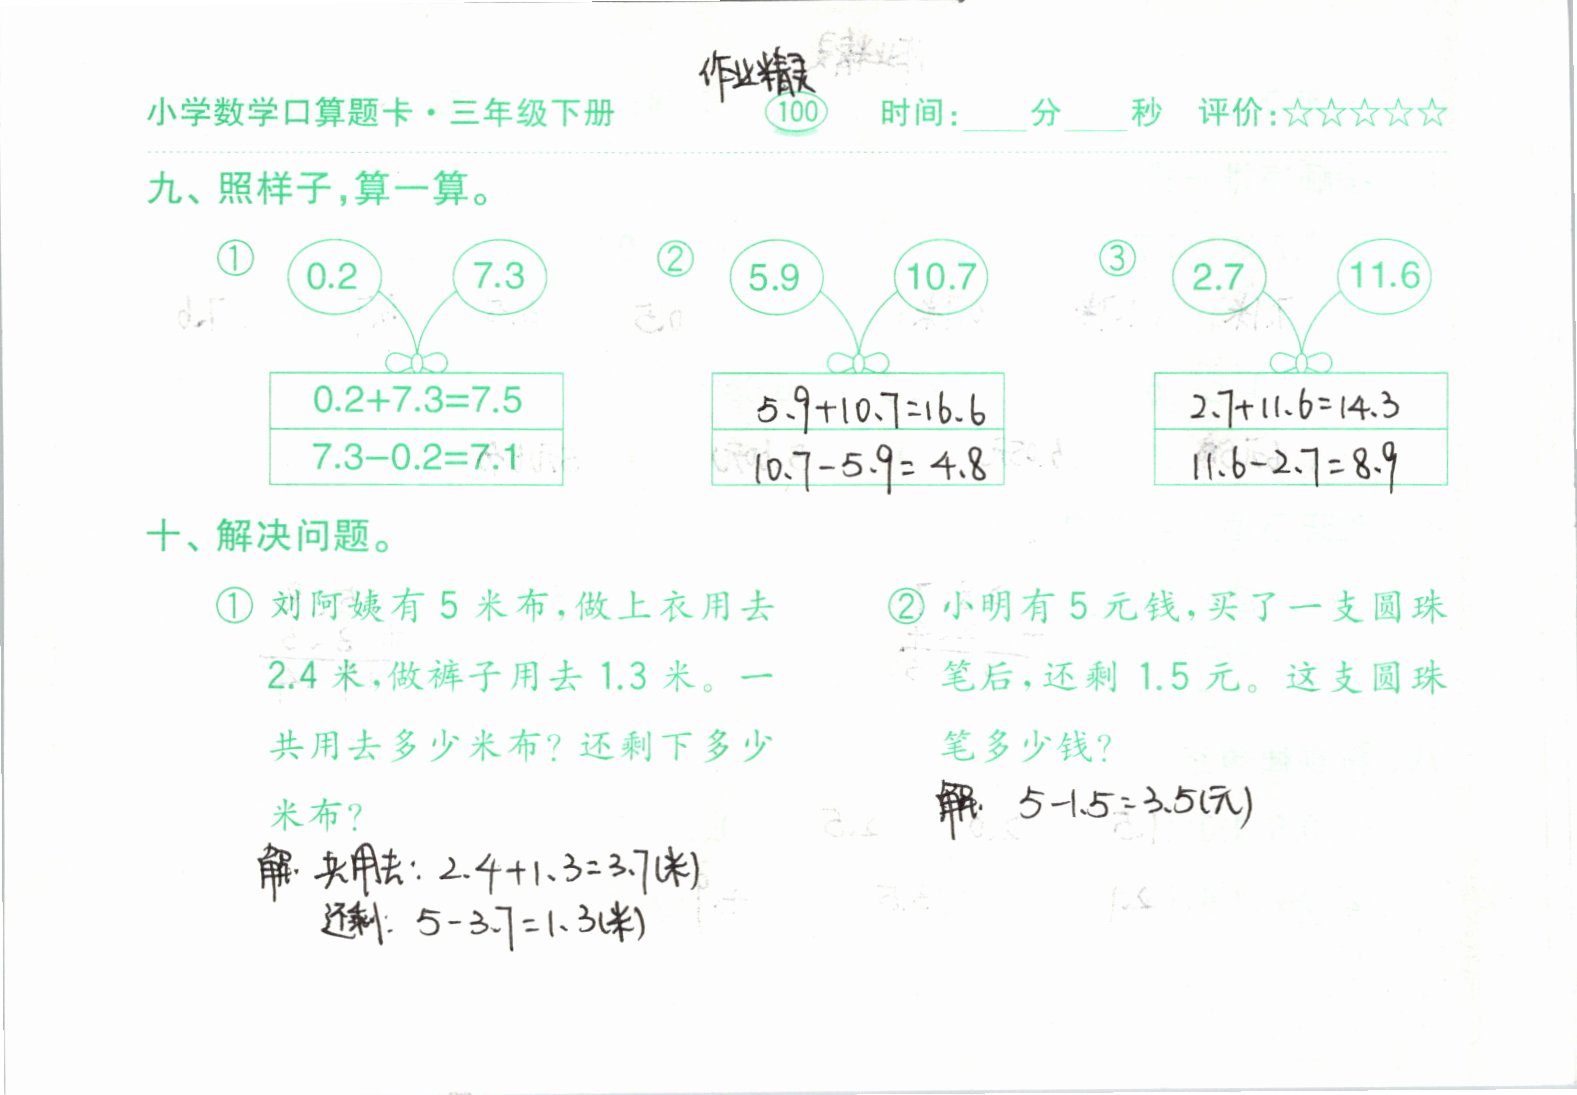 作业精灵
小学数学口算题卡·三年级下册 100 时间:____分____秒 评价:☆☆☆☆☆
九、照样子,算一算。
① 0.2 7.3 ② 5.9 10.7 ③ 2.7 11.6
0.2+7.3=7.5 5.9+10.7=16.6 2.7+11.6=14.3
7.3-0.2=7.1 10.7-5.9=4.8 11.6-2.7=8.9
十、解决问题。
① 刘阿姨有 5 米布,做上衣用去
2.4 米,做裤子用去 1.3 米。一
共用去多少米布?还剩下多少
米布?
解: 共用去: 2.4+1.3=3.7(米)
还剩: 5-3.7=1.3(米)
② 小明有 5 元钱,买了一支圆珠
笔后,还剩 1.5 元。这支圆珠
笔多少钱?
解: 5-1.5=3.5(元)